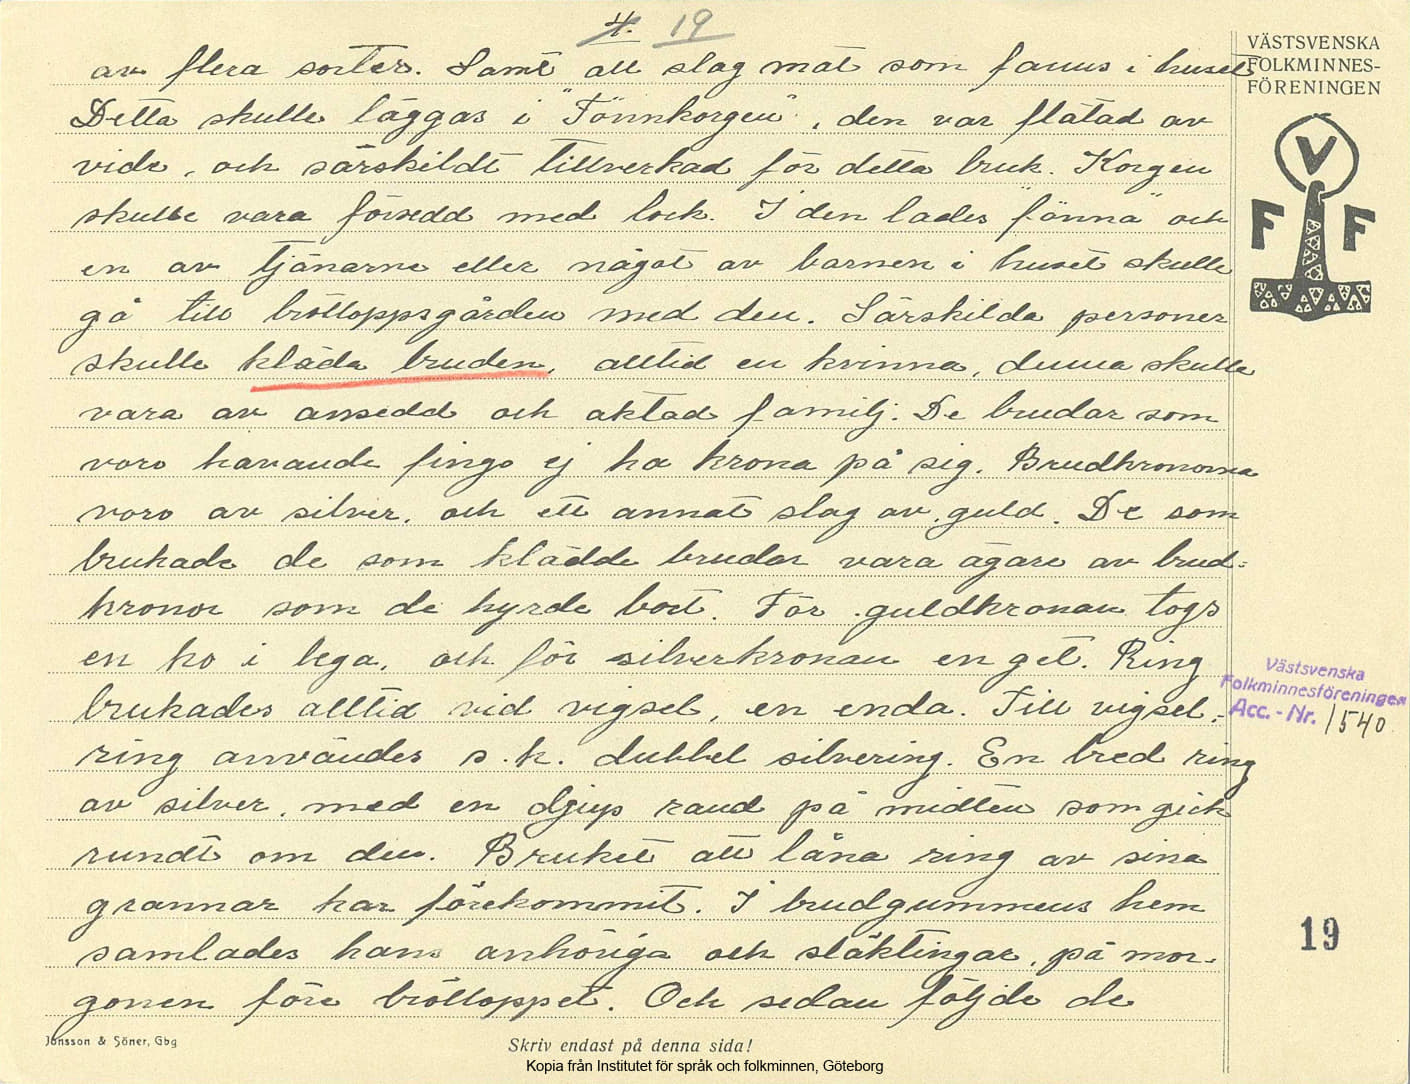 4. 19
av flera sorter. Samt all slag mat som fanns i huset
Detta skulle läggas i "Fönnkorgen", den var flätad av
vide, och särskildt tillverkad för detta bruk. Korgen
skulle vara försedd med lock. I den lades "fönna" och
en av tjänarne eller något av barnen i huset skulle
gå till brölloppsgården med den. Särskilda personer
skulle kläda bruden, alltid en kvinna, denna skulle
vara av ansedd och aktad familj. De brudar som
voro havande fingo ej ha krona på sig. Brudkronorna
voro av silver, och ett annat slag av guld. De som
brukade de som klädde brudar vara ägare av brud-
kronor som de hyrde bort. För guldkronan togs
en ko i lega, och för silverkronan en get. Ring
brukades alltid vid vigsel, en enda. Till vigsel-
ring användes s.k. dubbel silvering. En bred ring
av silver, med en djup rand på midten som gick
rundt om den. Bruket att låna ring av sina
grannar har förekommit. I brudgummens hem
samlades hans anhöriga och släktingar, på mor-
gonen före brölloppet. Och sedan följde de
VÄSTSVENSKA
FOLKMINNES-
FÖRENINGEN
V
F F
Västsvenska
Folkminnesföreningen
Acc.-Nr. 1540
19
Jonsson & Söner, Gbg
Skriv endast på denna sida!
Kopia från Institutet för språk och folkminnen, Göteborg